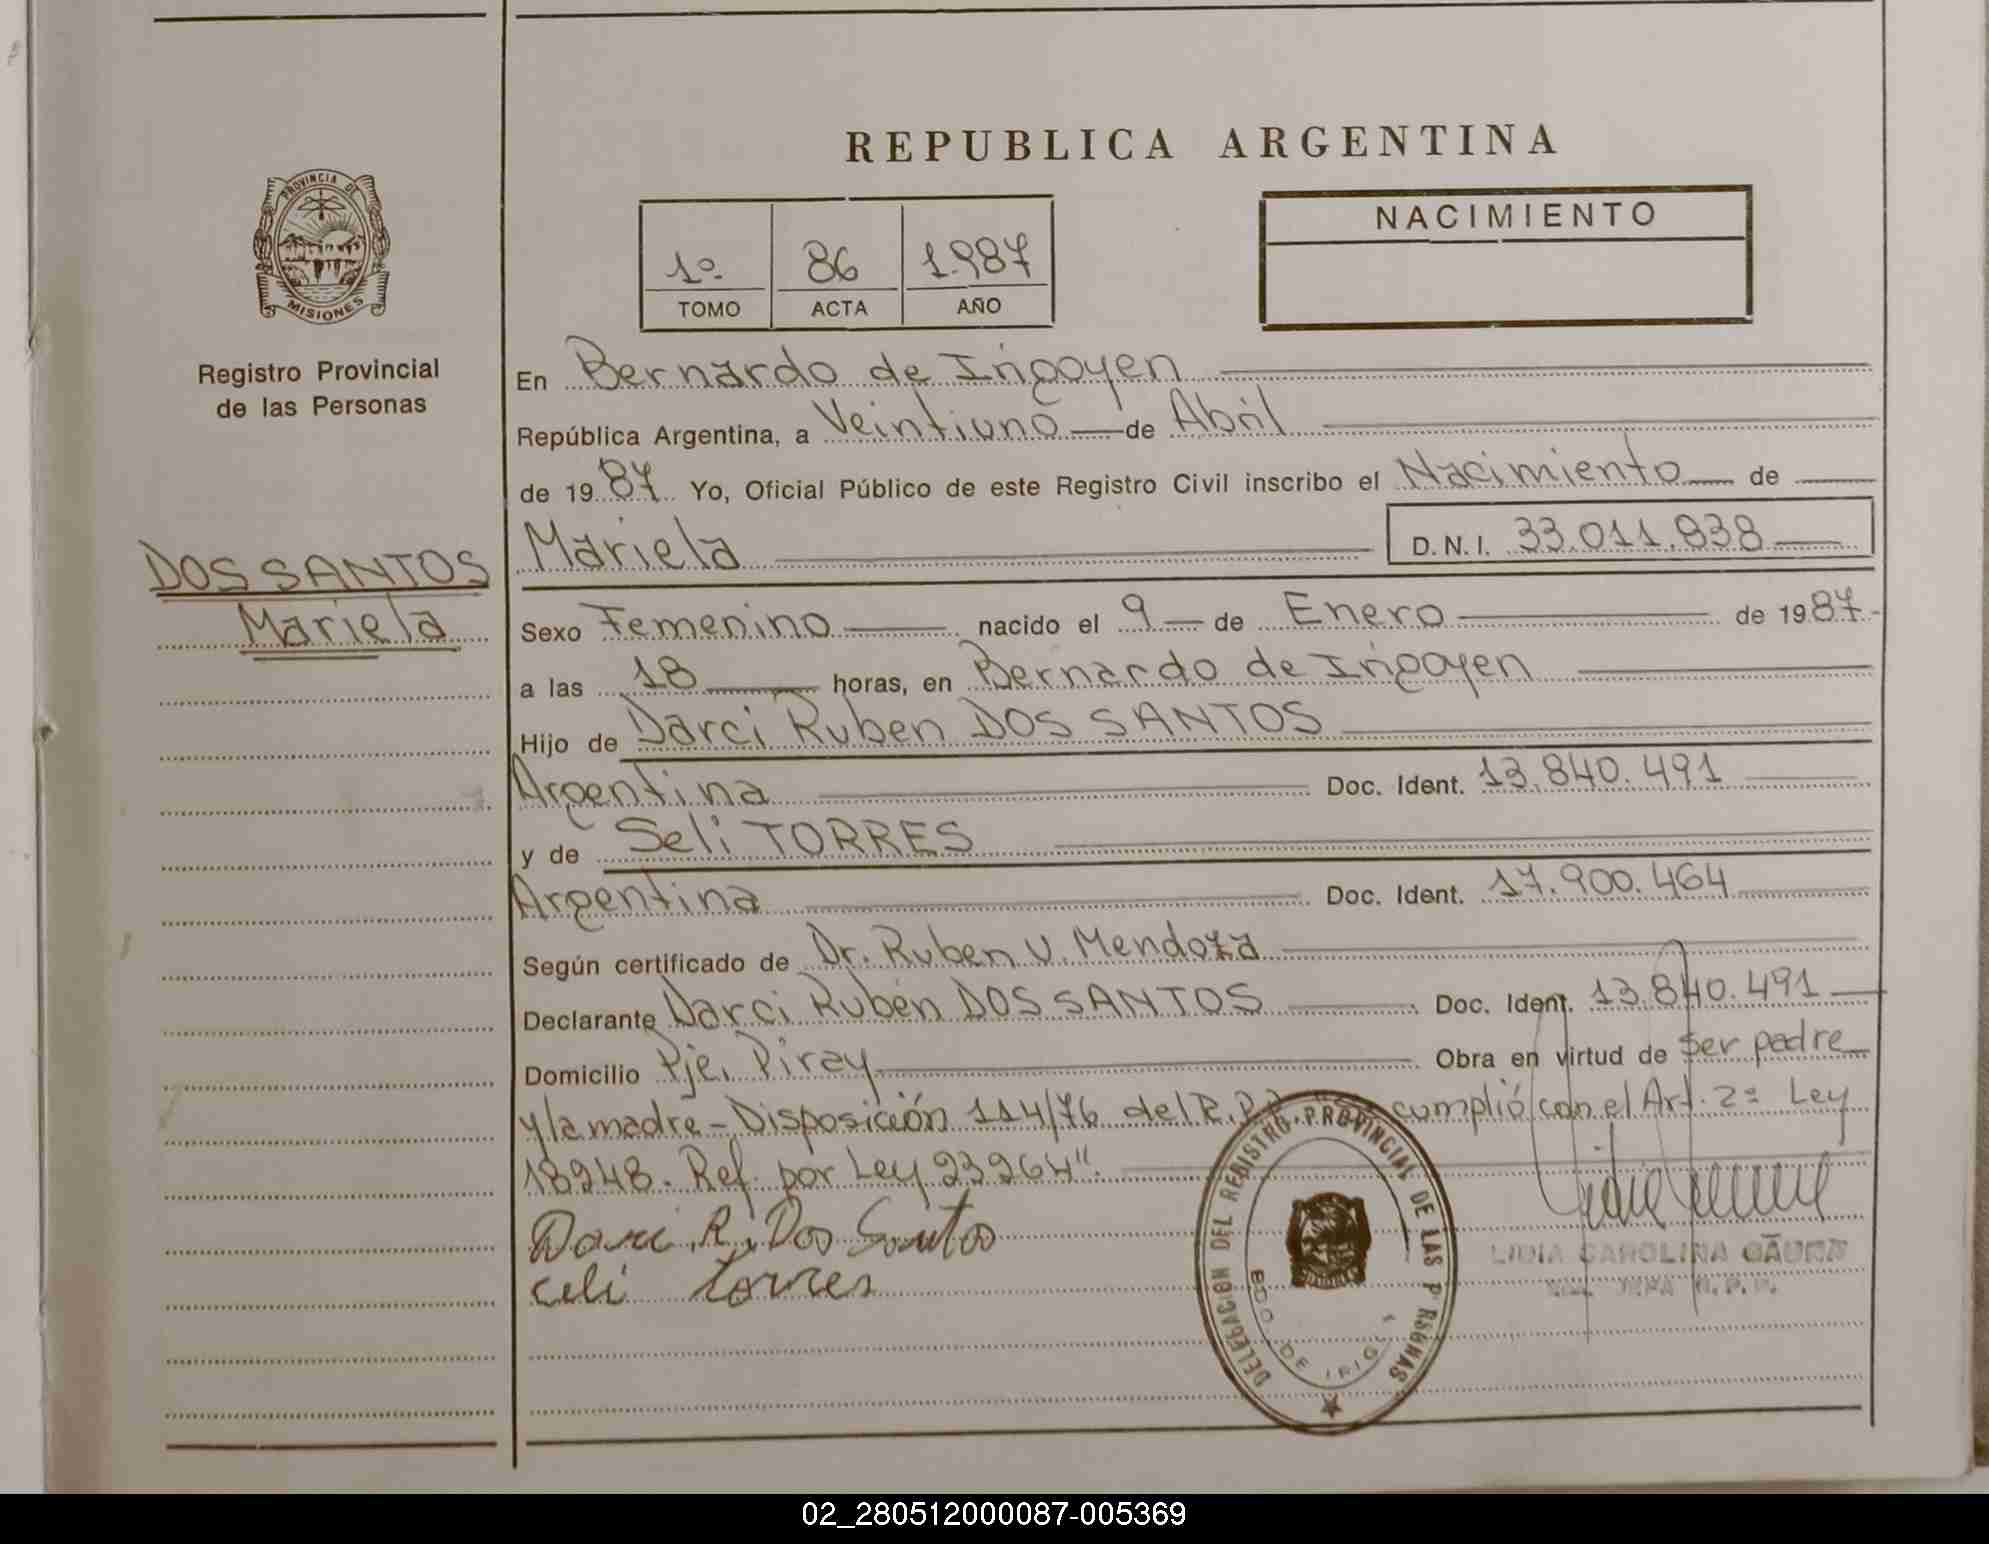 REPUBLICA ARGENTINA
PROVINCIA DE
MISIONES
Registro Provincial
de las Personas
1º 86 1.987
TOMO ACTA AÑO
NACIMIENTO
En Bernardo de Irigoyen
República Argentina, a Veintiuno de Abril
de 1987 Yo, Oficial Público de este Registro Civil inscribo el Nacimiento de
Mariela D.N.I. 33.011.838
DOS SANTOS
Mariela
Sexo Femenino nacido el 9 de Enero de 1987
a las 18 horas, en Bernardo de Irigoyen
Hijo de Darci Ruben DOS SANTOS
Argentina Doc. Ident. 13.840.491
y de Seli TORRES
Argentina Doc. Ident. 17.900.464
Según certificado de Dr. Ruben U. Mendoza
Declarante Darci Rubén DOS SANTOS Doc. Ident. 13.840.491
Domicilio Pje. Piray Obra en virtud de ser padre
y la madre - Disposición 114/76 del R.P. cumplió con el Art. 2º Ley
18248. Ref. por Ley 23264".
Darci R. Dos Santos
celi torres
DELEGACION DEL REGISTRO PROVINCIAL DE LAS P RSONAS
BDO. DE IRIG
LIDIA CAROLINA
R.P.P.
02_280512000087-005369